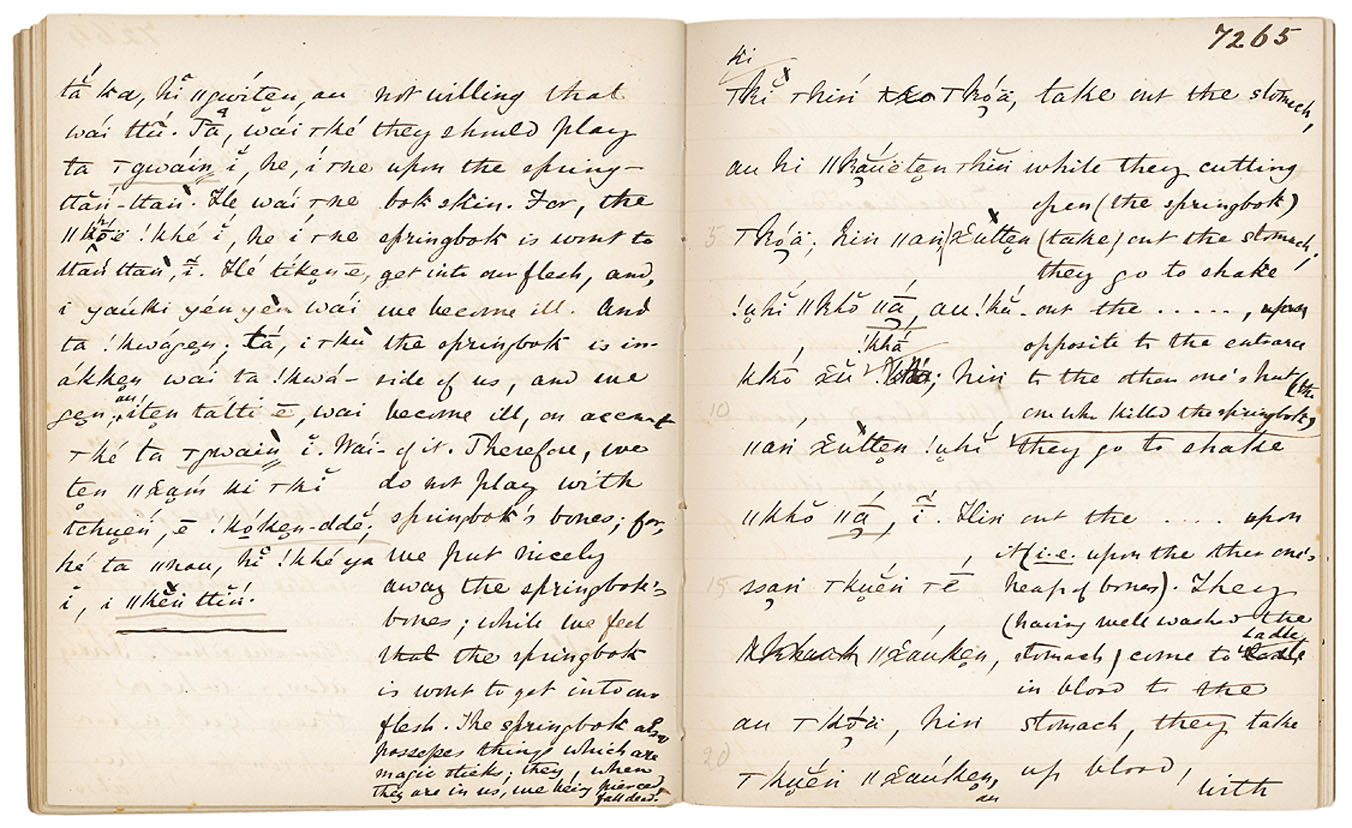 tắ ka, hĭ ǁgwíten, au
wái ttŭ. Tā́, wái ⊤ké
ta ⊤gwáiṉ ĭ, he, í ⊤ne
ttań-ttaṅ. Hé wái ⊤ne
!khé ĭ, hé í ⊤ne
ttań ttaṅ, ĭ. Hé tíkẹn ē,
i yaúki yén yèn wái
ta !kwágẹn; tá, i ⊤kŭ
ákkẹn wai ta !kwá-
gẹn, au íten tátti ē, wai
⊤ké ta ⊤gwaiṉ ĭ. Wái-
tẹn ǁx̱aṃ́ ki ⊤kĭ
tchuẹń, ē !kọ́kẹn-ddē;
hé ta ǁnau, hĭ !khé ya
ĭ, i ǁkĕ́n ttíń.
not willing that
they should play
upon the spring-
bok skin. For, the
springbok is wont to
get into our flesh, and,
we become ill. And
the springbok is in-
side of us, and we
become ill, on account
of it. Therefore, we
do not play with
springbok's bones; for,
we put nicely
away the springbok's
bones; while we feel
that the springbok
is wont to get into our
flesh. The springbok also
possesses things which are
magic sticks; they, when
they are in us, we being pierced,
fall dead.
7265
ki
⊤kĭ ⊤hiń ⊤kọ́ä,
au hi ⊤hĭń
5 ⊤kọ́ä; hiń ǁań x̱úttẹn
!ụhĭ ǁkhŏ ǁā́, au !kŭ
!khā́
kkó x̱ŭ ; hiń
10
ǁań x̱úttẹn !ụhĭ
ǁkhŏ ǁā́, ĭ. Hiń
15 ssạń ⊤kụĕ́ń ⊤ē
ǁx̱aúkẹn,
au ⊤kọ́ä, hiń
20
⊤kụĕ́ń ǁx̱aúkẹn,
au
take out the stomach,
while they cutting
open (the springbok)
(take) out the stomach,
they go to shake
out the ....., upon
opposite to the entrance
to the other one's hut (the
one who killed the springbok)
they go to shake
out the .... upon
it (i.e. upon the other one's
heap of bones). They
(having well washed the
stomach) come to ladle
in blood to the
stomach, they take
up blood, with